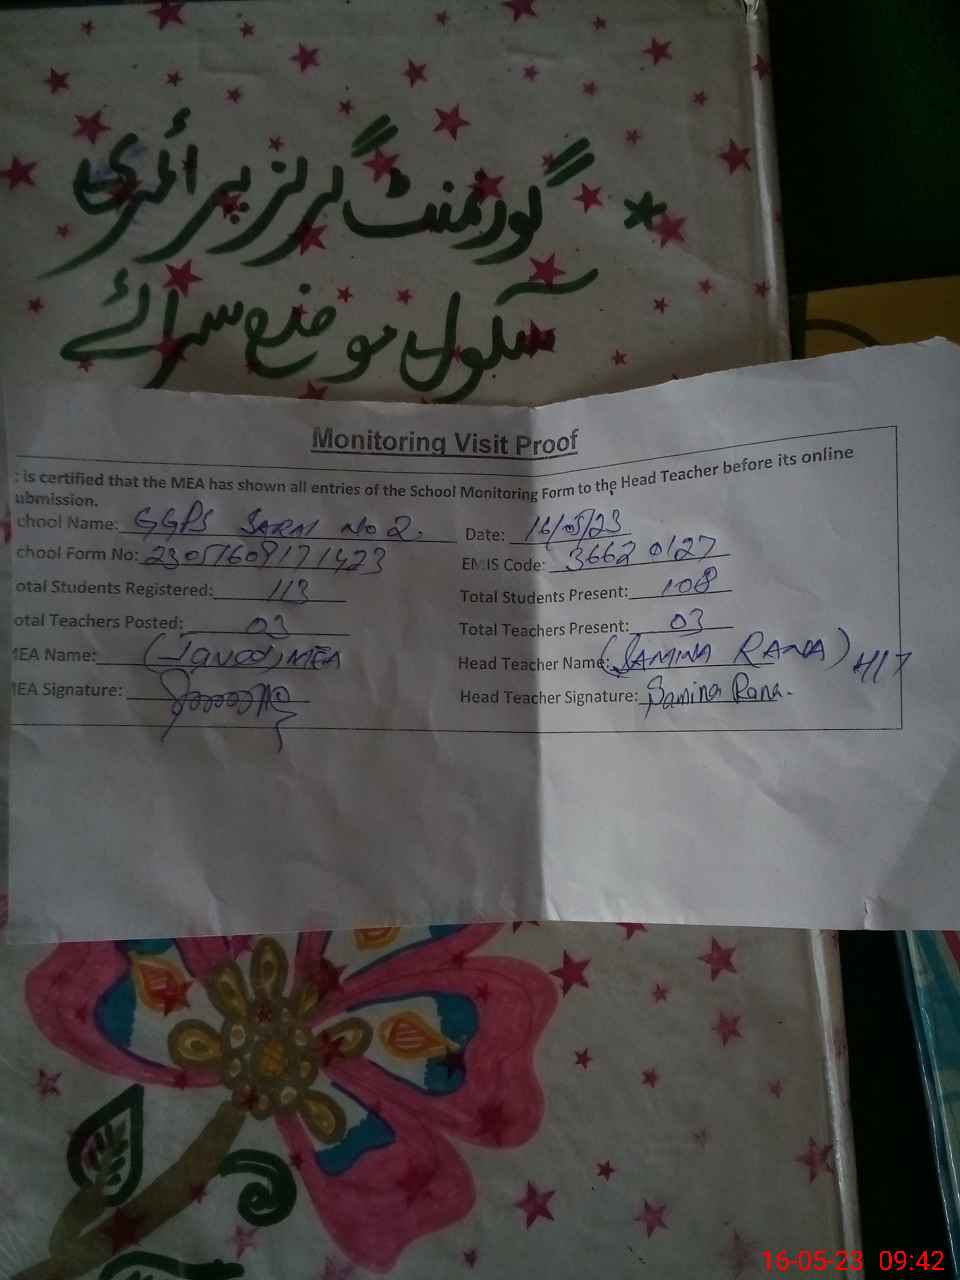 * گورنمنٹ گرلز پرائمری
سکول موضع سرائے
Monitoring Visit Proof
: is certified that the MEA has shown all entries of the School Monitoring Form to the Head Teacher before its online
ubmission.
chool Name: GGPS SARAI No 2. Date: 16/05/23
chool Form No: 23051609171423 EMIS Code: 36620127
otal Students Registered: 113 Total Students Present: 108
otal Teachers Posted: 03 Total Teachers Present: 03
MEA Name: (Javed) MEA Head Teacher Name: (SAMINA RANA) H/T
MEA Signature: Head Teacher Signature: Samina Rana.
16-05-23 09:42